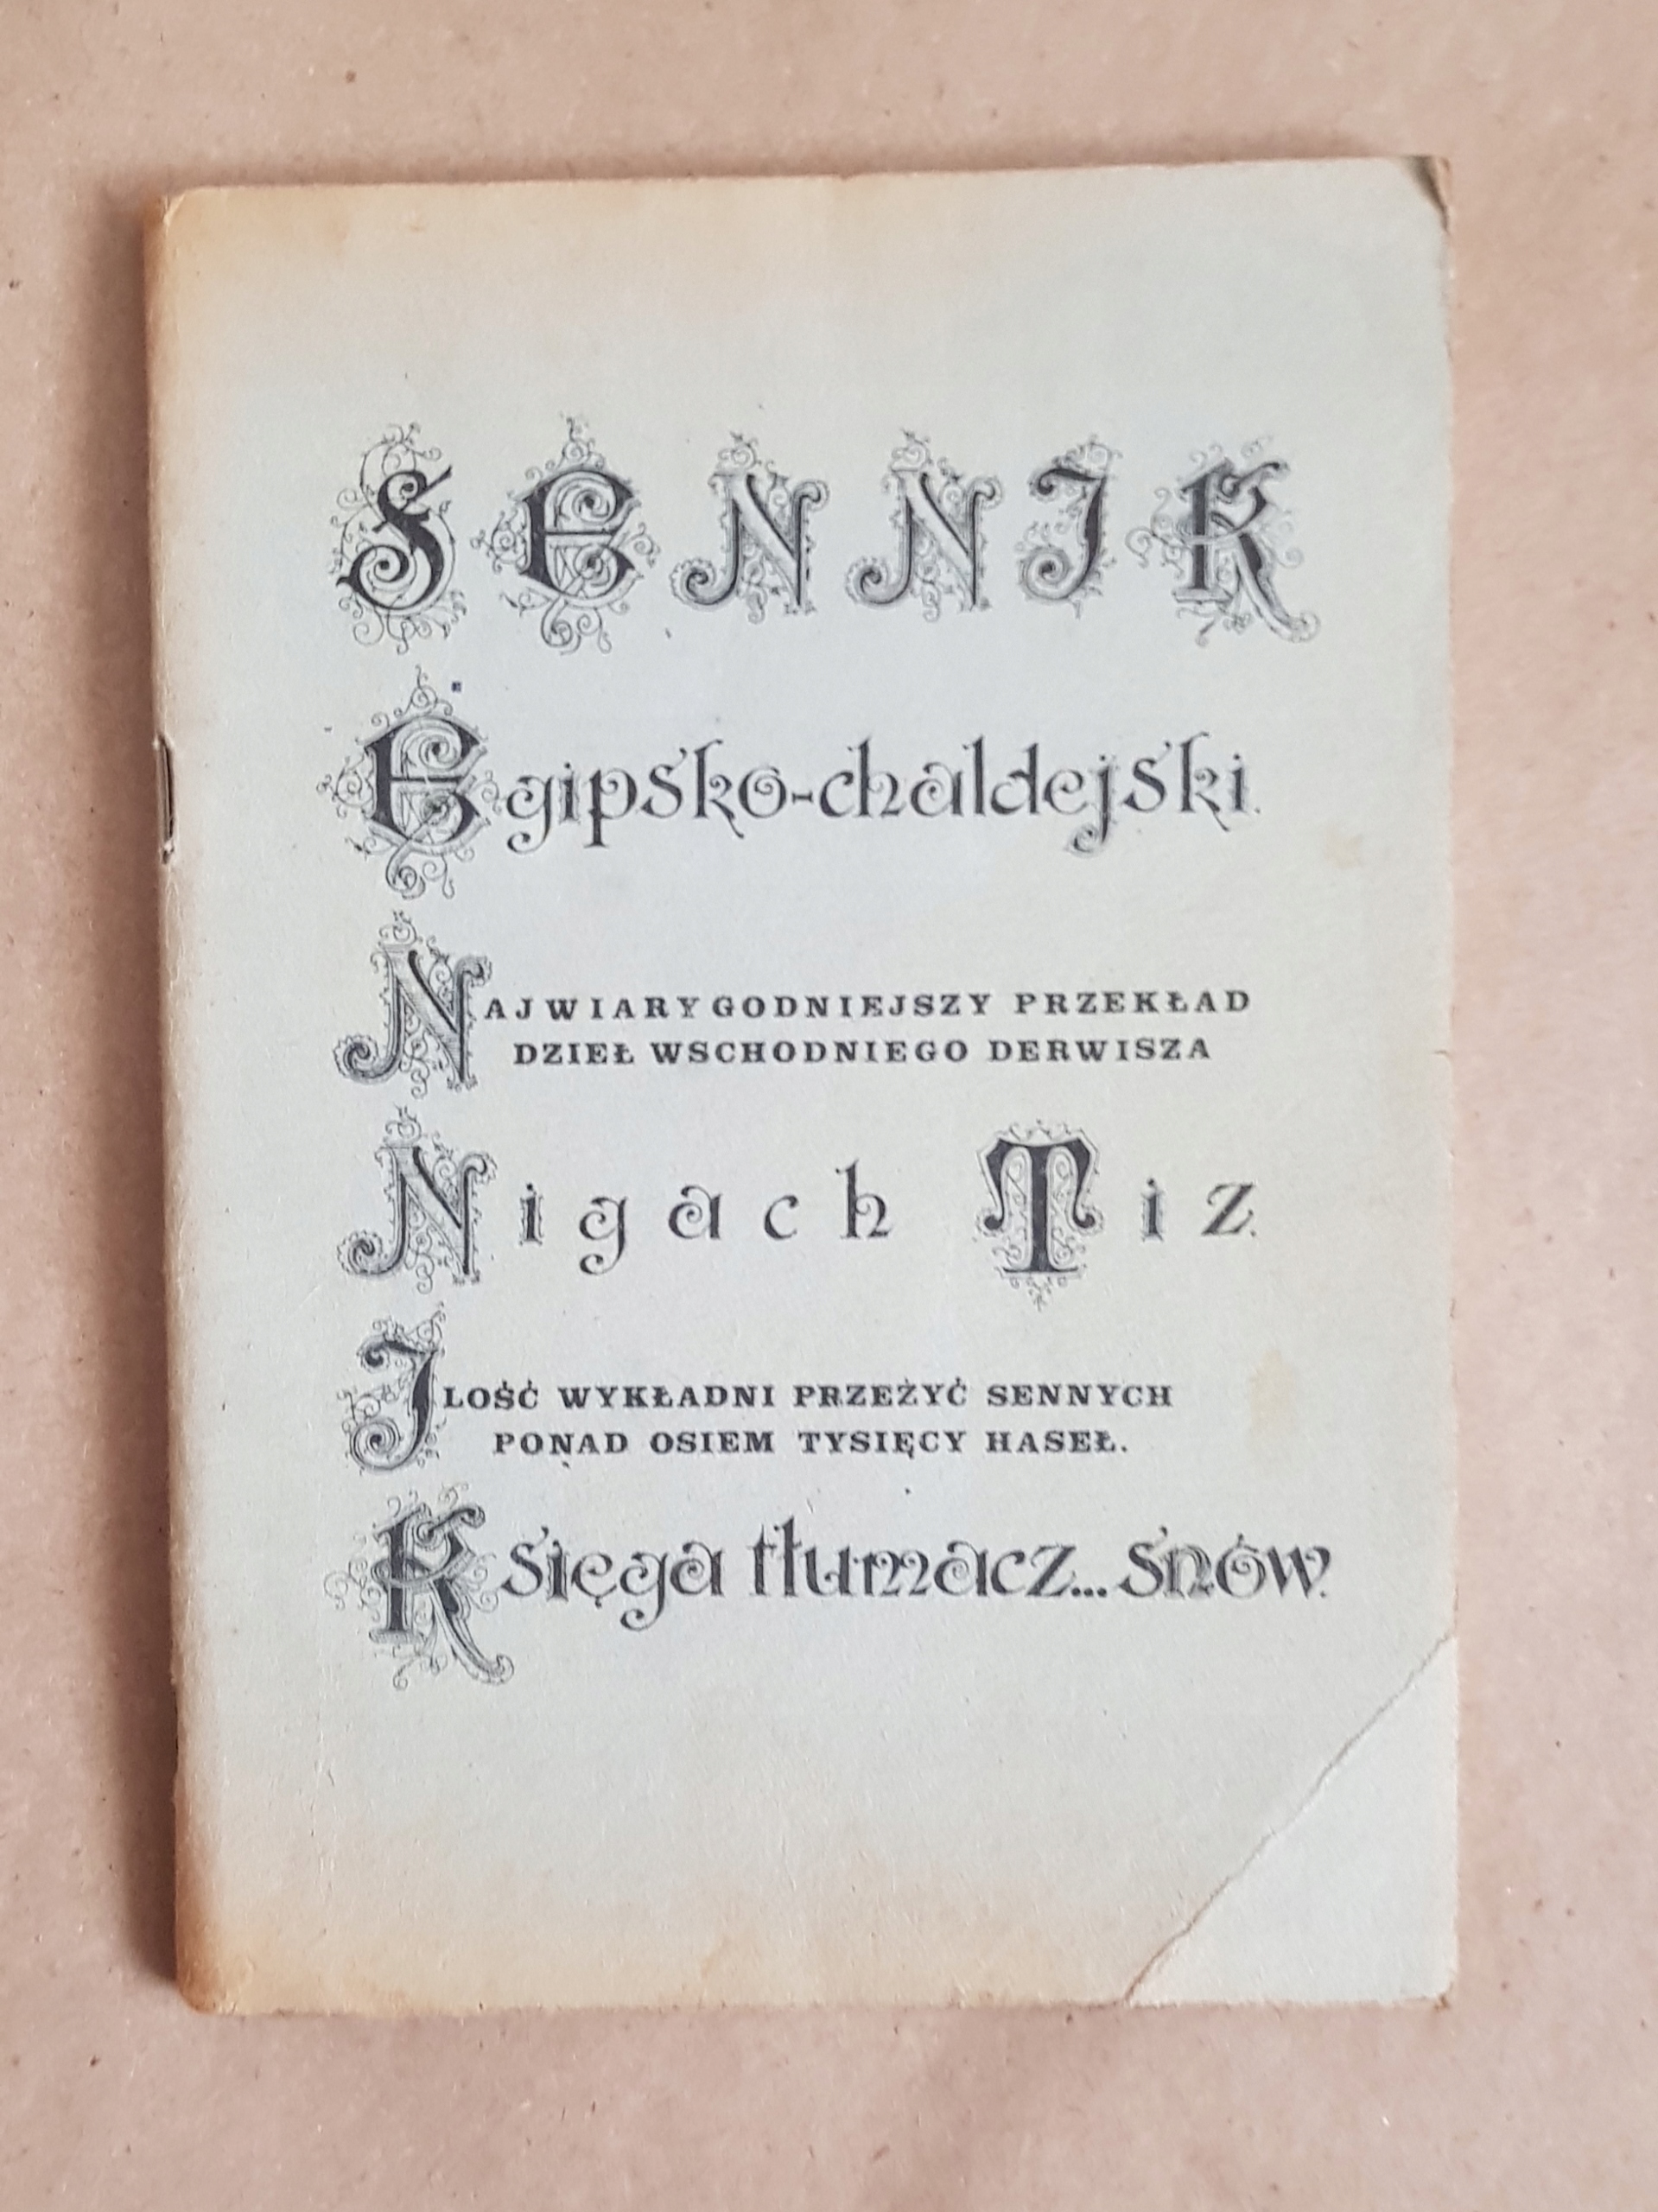 SENNIK
Egipsko-chaldejski.
NAJWIARYGODNIEJSZY PRZEKŁAD
DZIEŁ WSCHODNIEGO DERWISZA
Nigach Tiz.
ILOŚĆ WYKŁADNI PRZEŻYĆ SENNYCH
PONAD OSIEM TYSIĘCY HASEŁ.
Księga tłumacz... snów.